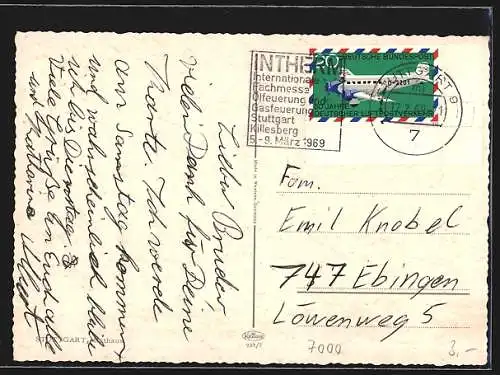 Lieber Bruder,
vielen Dank für Deine
Karte. Ich werde
am Samstag kommen
und wahrscheinlich bleibe
ich bis Dienstag.
Viele Grüße an Euch alle
und
INTHERM
Internationale
Fachmesse
Ölfeuerung und
Gasfeuerung
Stuttgart
Killesberg
5.-9. März 1969
DEUTSCHE BUNDESPOST
50 JAHRE
DEUTSCHER LUFTPOSTVERKEHR
7
Fam.
Emil Knobel
747 Ebingen
Löwenweg 5
STUTTGART,
7000
3,-